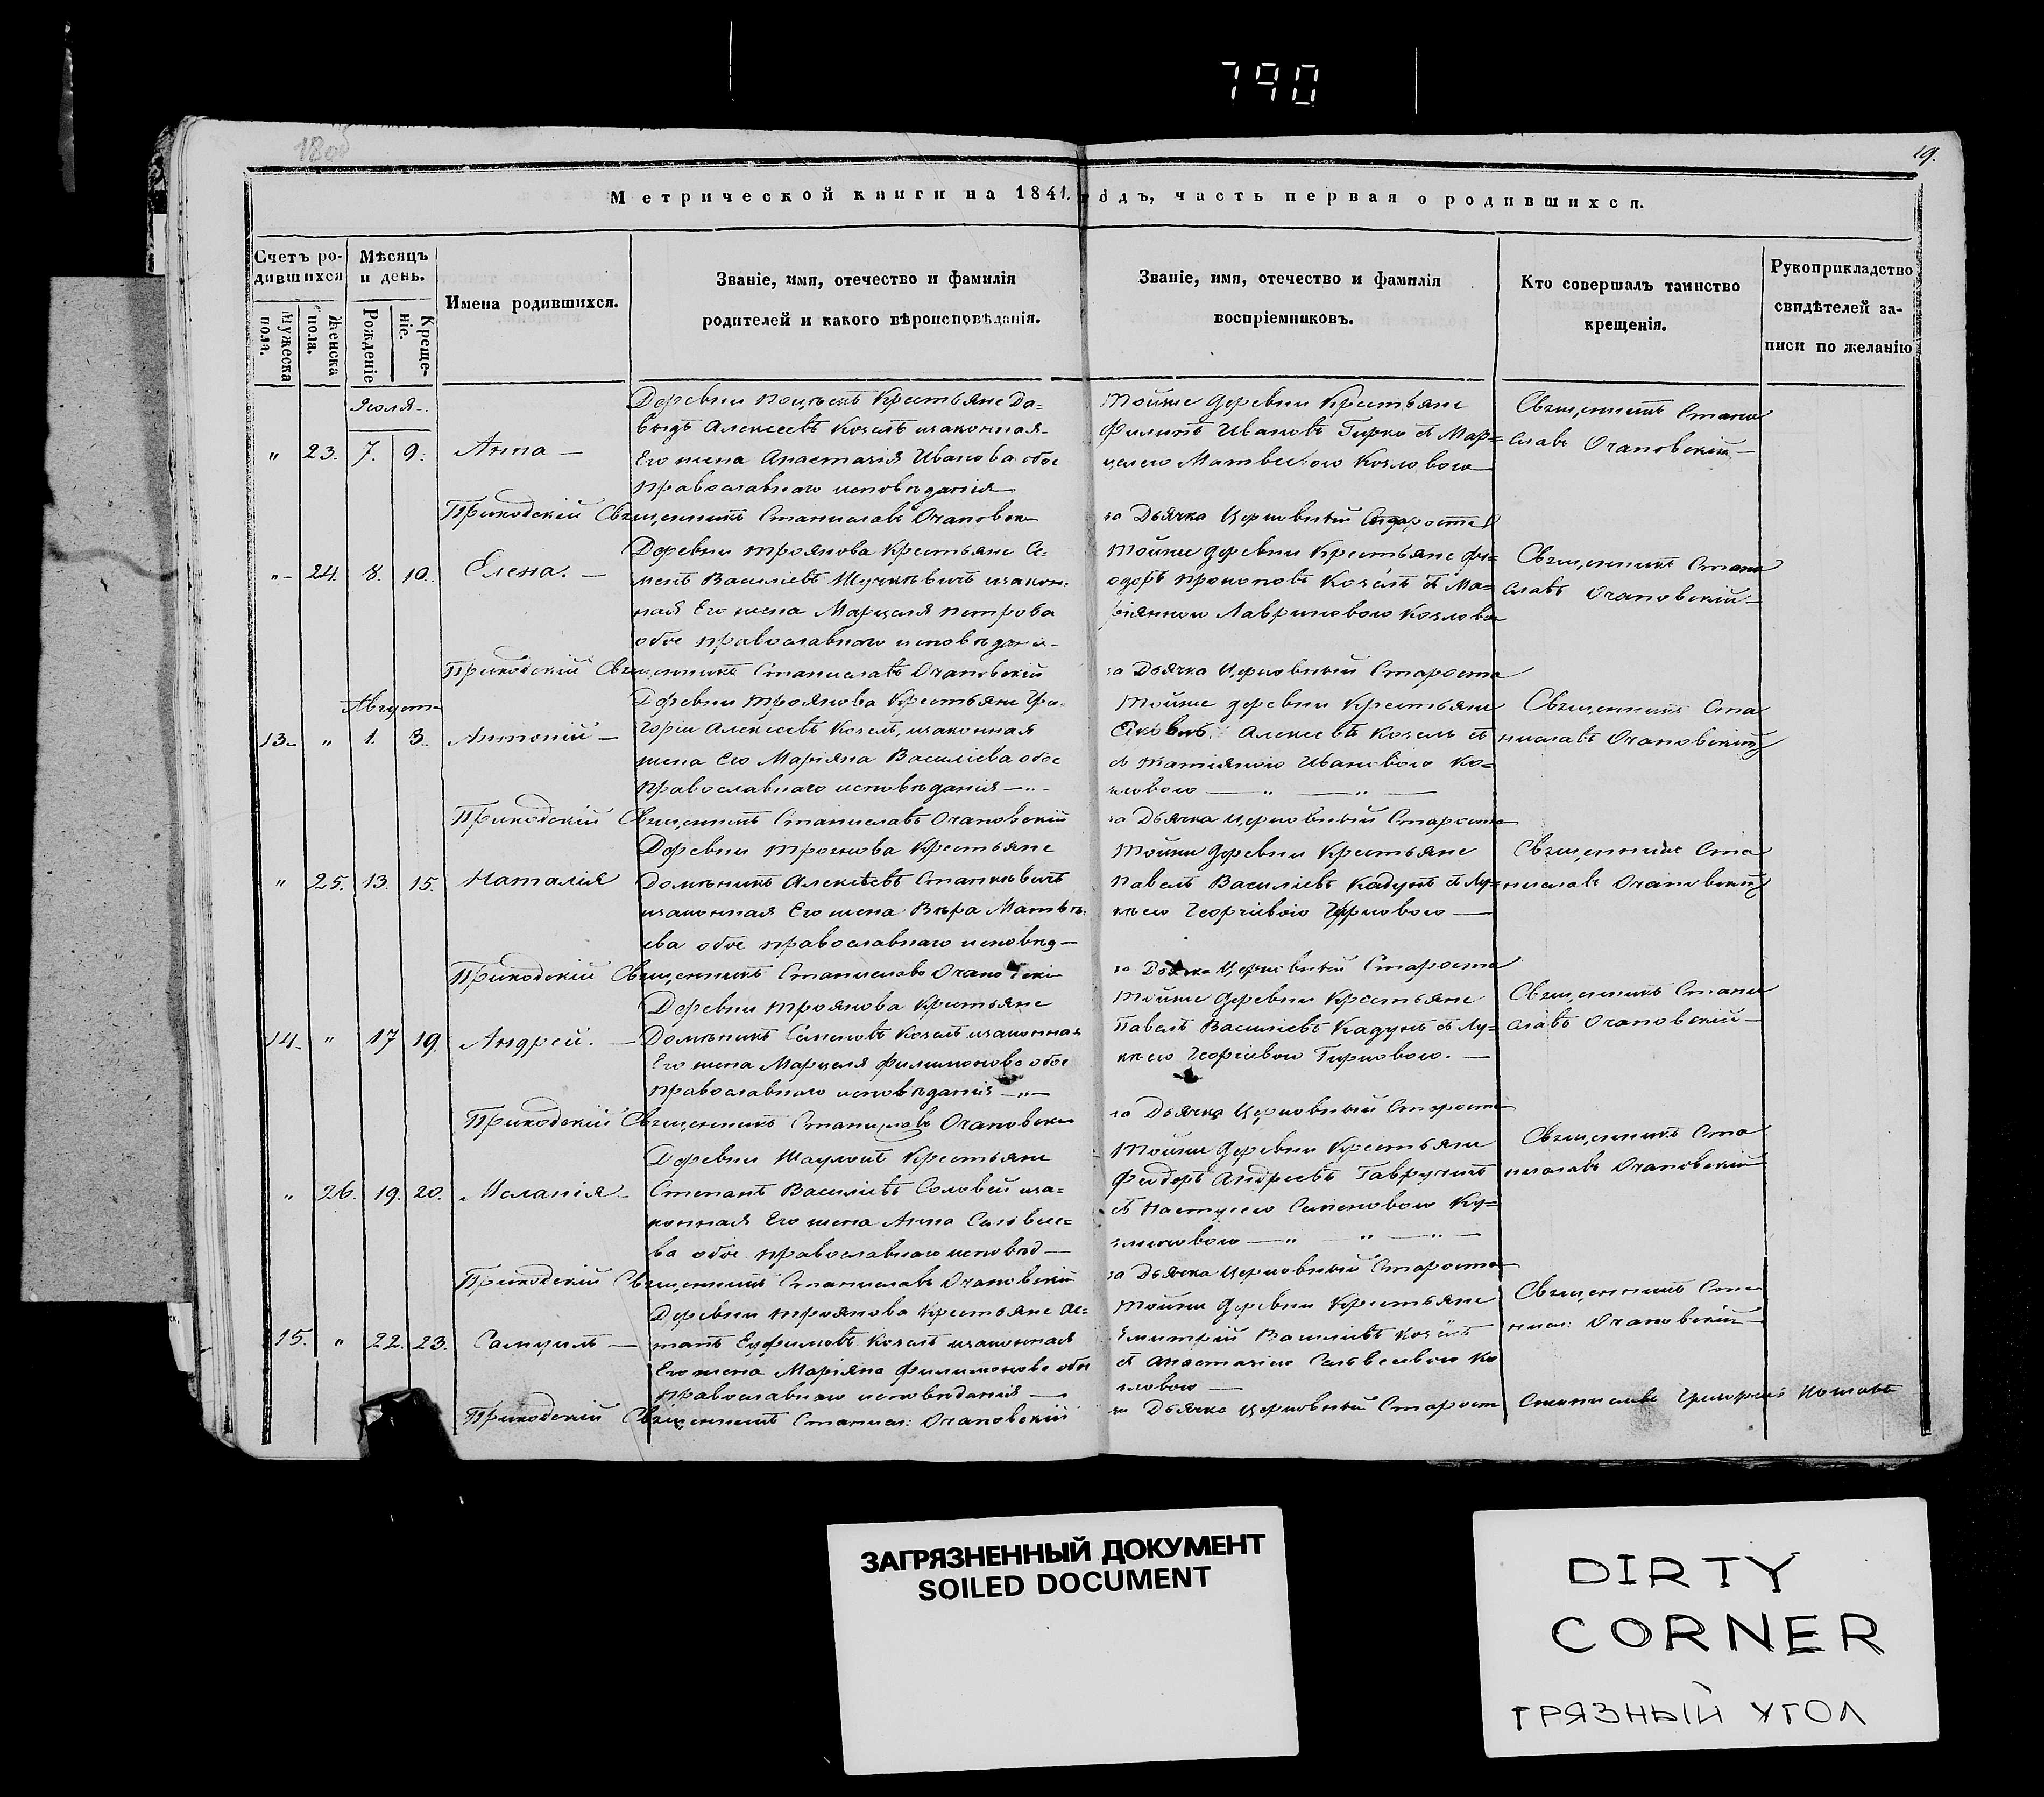 790
18об
19.
Метрической книги на 1841. годъ, часть первая о родившихся.
Счетъ ро-
дившихся
Мужеска пола.
Женска пола.
Мѣсяцъ
и день.
Рожденіе
Креще-
ніе.
Имена родившихся.
Званіе, имя, отечество и фамилія
родителей и какого вѣроисповѣданія.
Званіе, имя, отечество и фамилія
воспріемниковъ.
Кто совершалъ таинство
крещенія.
Рукоприкладство
свидѣтелей за-
писи по желанію
Іюля
„ 23. 7. 9. Анна —
Деревни Крестьяне Да=
выдъ Алексеевъ Козелъ законная
Его жена Анастазія Иванова обое
православнаго исповѣданія
Тойже деревни Крестьяне
Филипъ Ивановъ Гирко съ Мар=
целею Матвеевою Козловою
Священникъ Стани
славъ Очаповскій —
Приходскій Священникъ Станиславъ Очаповски
за Дьячка Церковный Староста
„ 24. 8. 10. Елена. —
Деревни Троянова Крестьяне Се=
менъ Василіевъ закон:
ная Его жена Марцеля Петрова
обое православнаго исповѣдані
Тойже деревни Крестьяне Фе=
одоръ Прокоповъ Козелъ съ Ма=
ріянною Лавриновою Козлова
Священникъ Стани
славъ Очаповскій —
Приходскій Священникъ Станиславъ Очаповскій
за Дьячка Церковный Староста
Августа
13. „ 1. 3. Антоній —
Деревни Троянова Крестьяне Гри=
горій Алексеевъ Козелъ, законная
жена Его Маріяна Василіева обое
православнаго исповѣданія — „ -
Тойже деревни Крестьяне
Алексеевъ Козелъ съ
съ Татіяною Ивановою Ко=
зловою — „ — „ —
Священникъ Ста
ниславъ Очаповскій
Приходскій Священникъ Станиславъ Очаповскій
за Дьячка Церковный Староста
„ 25. 13. 15. Наталія
Деревни Троянова Крестьяне
Домѣникъ Алексѣевъ Станкѣвичъ
законная Его жена Вѣра Матвѣ=
ева обое православнаго исповѣд —
Тойже деревни Крестьяне
Павелъ Василіевъ Кадунъ съ Лу=
кѣею Георгіевою
Священникъ Ста
ниславъ Очаповскій
Приходскій Священникъ Станиславъ Очаповскі
за Дьячка Церковный Староста
14. „ 17 19. Андрей. —
Деревни Троянова Крестьяне
Домѣникъ Семеновъ Козелъ законная
Его жена Марцеля Филимонова обое
православнаго исповѣданія — „ —
Тойже деревни Крестьяне
Павелъ Василіевъ Кадунъ съ Лу=
кѣею Георгіевою Гирковою. —
Священникъ Стани
славъ Очаповскій —
Приходскій Священникъ Станиславъ Очаповски
за Дьячка Церковный Староста
„ 26. 19. 20. Меланія —
Деревни Крестьяне
Степанъ Василіевъ Соловей зка=
конная Его жена Анна
ва обое православнаго исповѣд —
Тойже деревни Крестьяне
Федоръ Андреевъ Гавручикъ
съ Настусею Семеновою
— „ „ — „ —
Священникъ Ста
ниславъ Очаповскій
Приходскій Священникъ Станиславъ Очаповскій
за Дьячка Церковный Староста
15. „ 22. 23. Самуилъ —
Деревни Троянова Крестьяне Ас=
тапъ Козелъ законная
Его жена Маріяна Филимонова обое
православнаго исповѣданія —
Тойже деревни Крестьяне
Дмитрій Василіевъ Козелъ
съ Анастазіею Ко
зловою —
Священникъ Ста
нисл: Очаповскій —
Приходскій Священникъ Станисл: Очаповскій
за Дьячка Церковный Старост Станиславъ
ЗАГРЯЗНЕННЫЙ ДОКУМЕНТ
SOILED DOCUMENT
DIRTY
CORNER
ГРЯЗНЫЙ УГОЛ